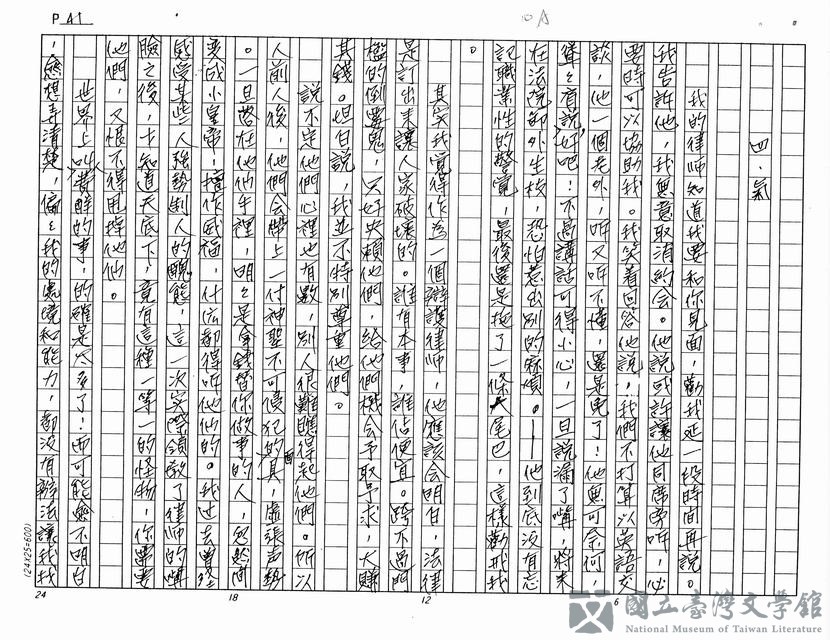 P A1
四·氣
我的律師知道我要和你見面，勸我延一段時間再說。
我告訴他，我無意取消約會。他說或許讓他同席旁听，必
要時可以協助我。我笑着回答他說：我們不打算以英語交
談，他一個老外，听又听不懂，還是免了！他無可奈何，
聳聳肩說好吧！不過講話可得小心，一旦說漏了嘴，將來
在法院節外生枝，恐怕惹出別的麻煩。——他到底沒有忘
記職業性的警覺，最後還是拖了一條大尾巴，這樣勸戒我
。
其实我覚得作為一個辯護律師，他應該会明白，法律
是訂出來讓人家破壞的。誰有本事，誰佔便宜。跨不過門
檻的倒霉鬼，只好央賴他們，給他們機会予取予求，大賺
其錢。坦白說，我並不特別尊重他們。
說不定他們心裡也有数，別人很難瞧得起他們。所以
人前人後，他們会擺上一付神聖不可侵犯的面具，虛張声勢
。一旦落在他們手裡，明明是拿錢替你做事的人，忽然間
変成小皇帝，擅作威福，什麼都得听他們的。我过去曾經
感受某些人強勢制人的醜態，這一次实際領教了律師的嘴
臉之後，才知道天底下，竟有這種一等一的怪物，你需要
他們，又恨不得甩掉他們。
世界上叫人費解的事，的確是太多了！要可能無不明白
，無想弄清楚，偏偏我的處境和能力，都沒有辦法讓我找
(24X25=600)
24
18
12
6
國立臺灣文學館
National Museum of Taiwan Literature